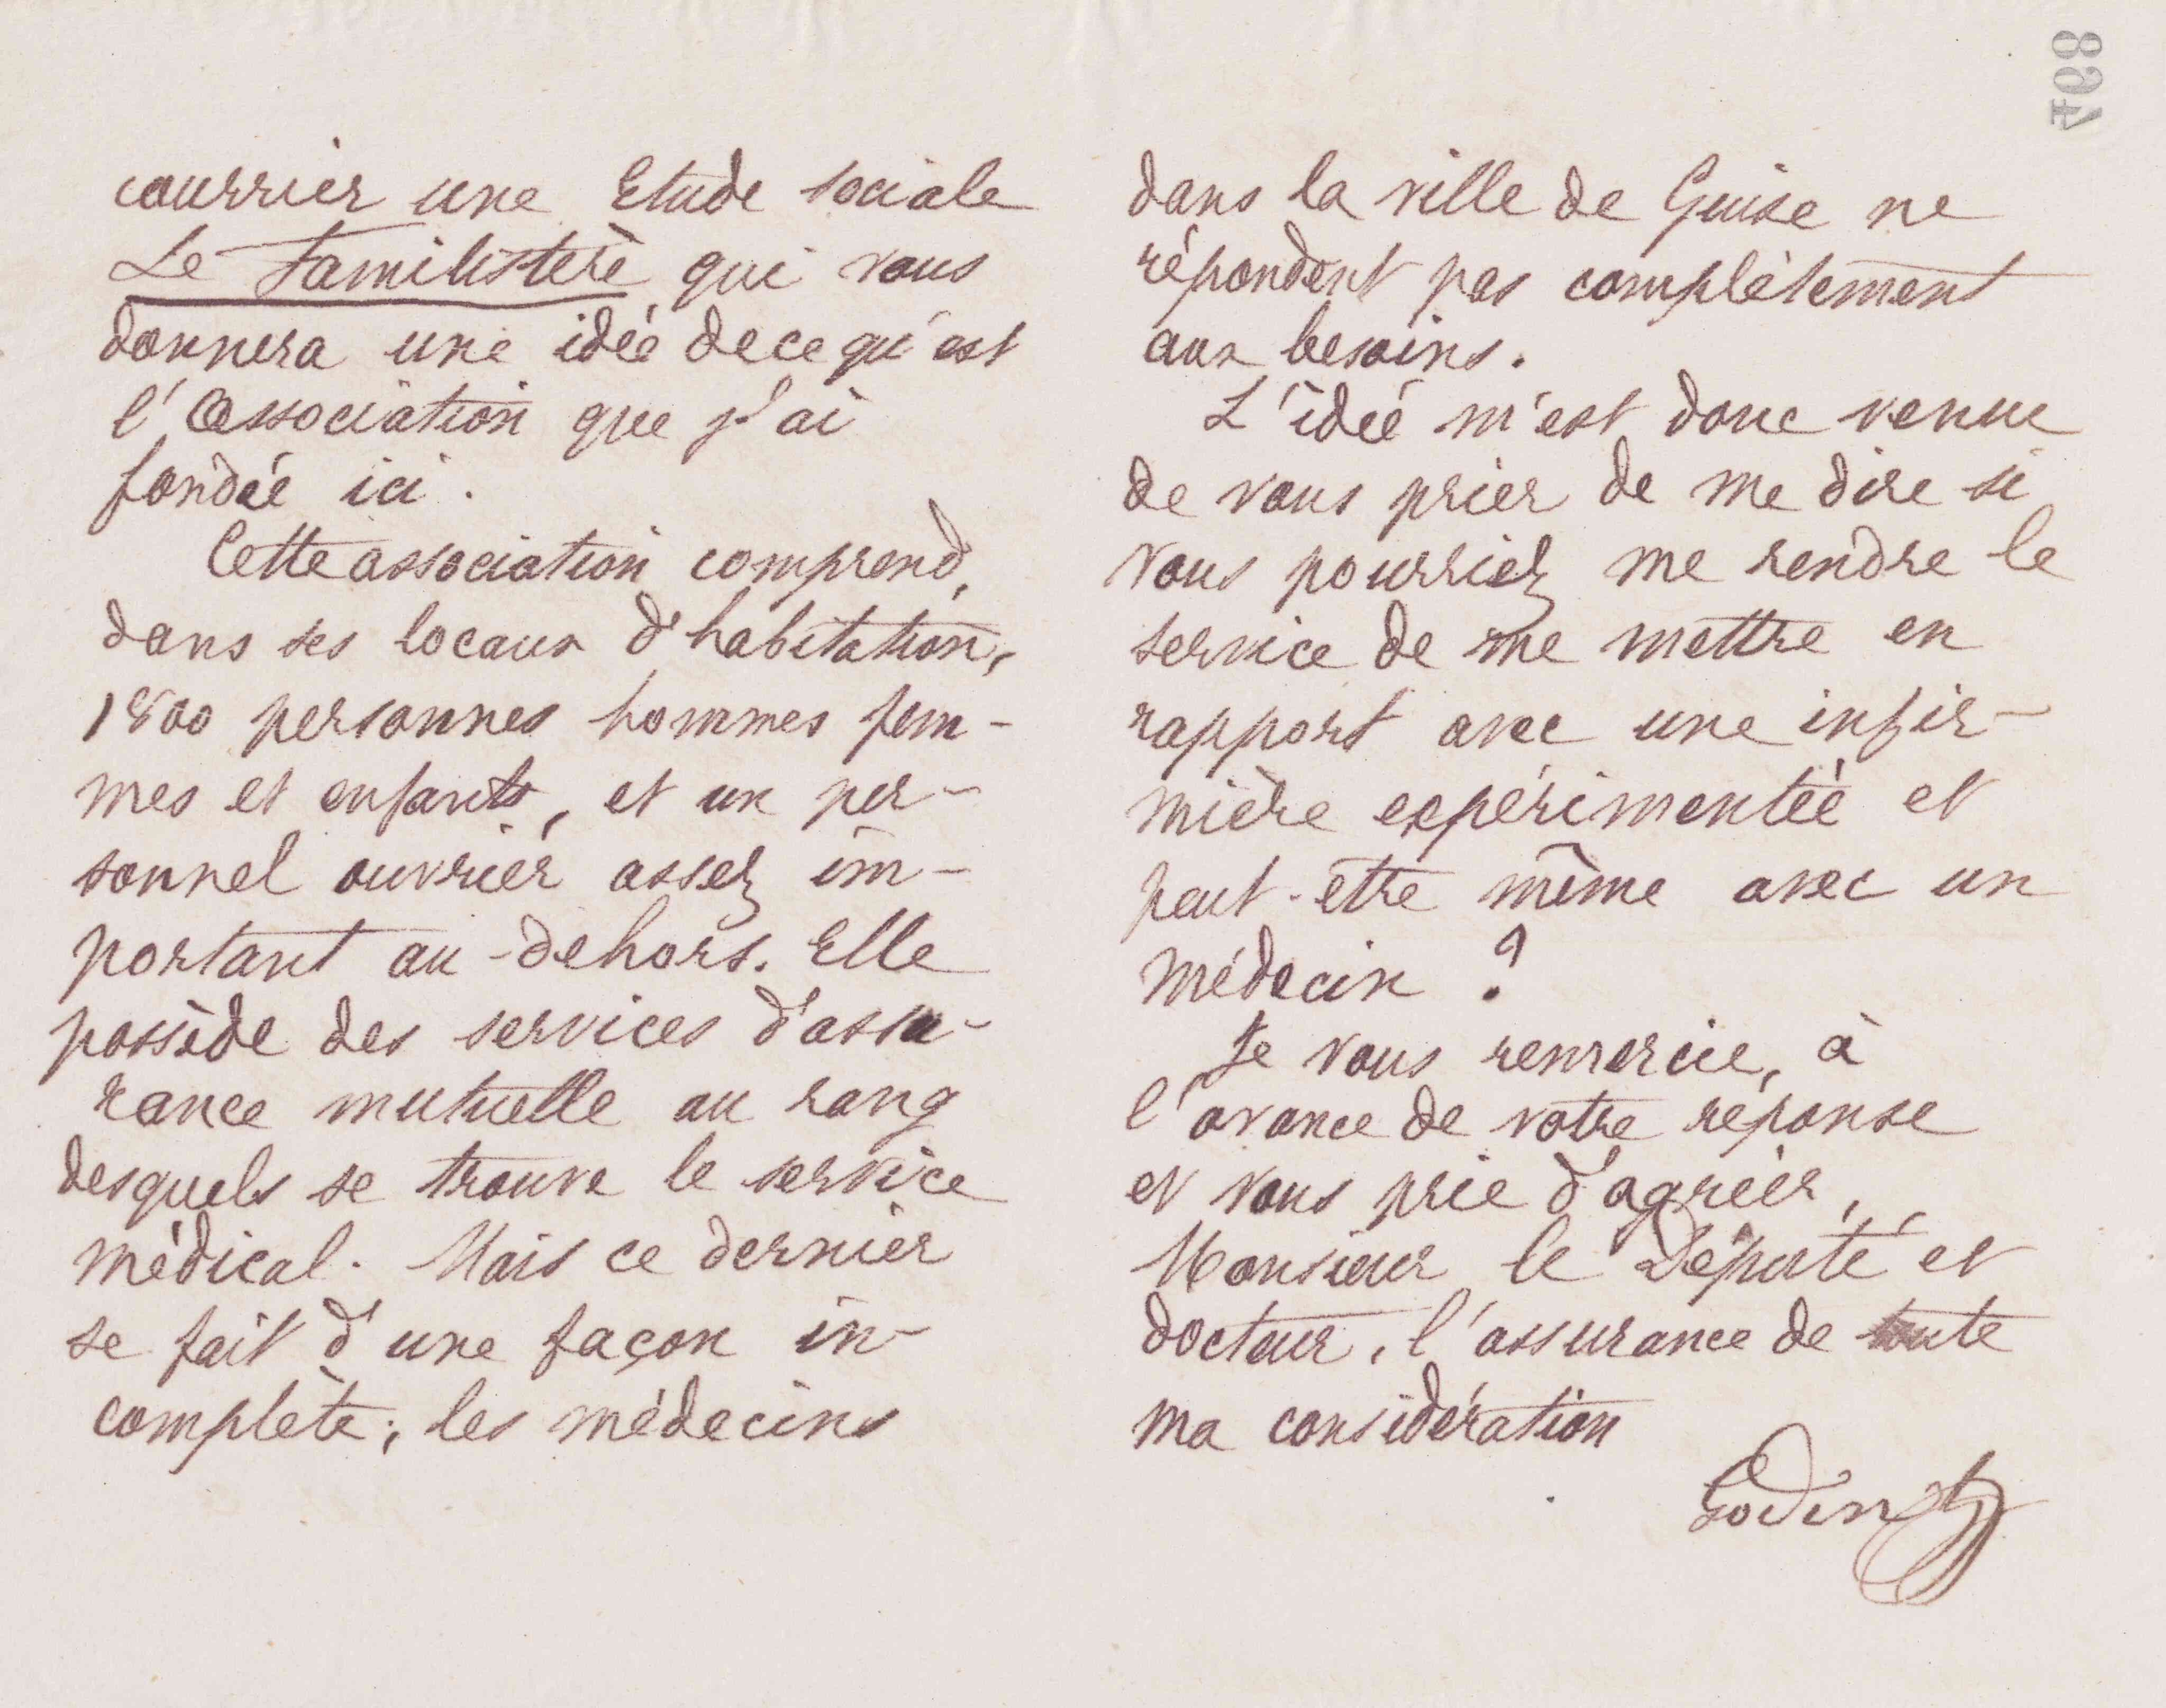 courrier une Etude sociale
Le Familistère qui vous
donnera une idée de ce qu'est
l'Association que j'ai
fondée ici.
Cette association comprend,
dans ses locaux d'habitation,
1800 personnes hommes fem-
mes et enfants, et un per-
sonnel ouvrier assez im-
portant au-dehors. Elle
possède des services d'assu-
rance mutuelle au rang
desquels se trouve le service
médical. Mais ce dernier
se fait d'une façon in-
complète; les médecins
498
dans la ville de Guise ne
répondent pas complètement
aux besoins.
L'idée m'est donc venue
de vous prier de me dire si
vous pourriez me rendre le
service de me mettre en
rapport avec une infir-
mière expérimentée et
peut-être même avec un
médecin ?
Je vous remercie, à
l'avance de votre réponse
et vous prie d'agréer,
Monsieur le Député et
docteur, l'assurance de toute
ma considération
Godin